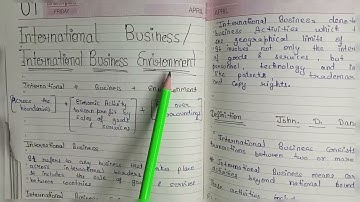 01
FROM
APRIL
International Business/
International Business Environment
International + Business + Environment
Across the boundaries
Economic Activity
to earn profit by
sales of goods
& services
over
surrounding
International Business
It refers to any business that takes place
across international borders
It includes the sale of goods & services
International Business
APRIL
International Business
Business Activities which
geographical limits of
It involves not only the
of goods & services, but
personnel, technology and
like patents, trademarks
and copy rights.
Definition John. D. Dan
International Business consists
transactions between two or more
International Business means
activities beyond national